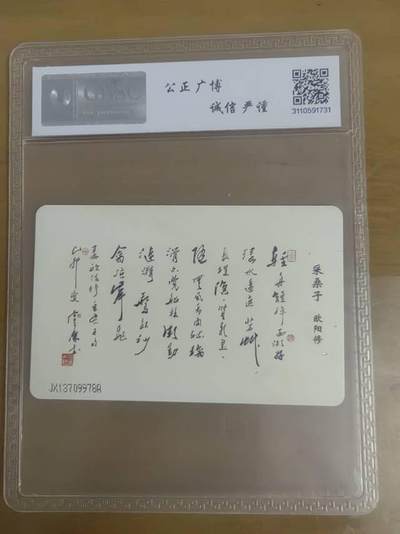 公正广博
诚信严谨
3110591731
采桑子 欧阳修
轻舟短棹西湖好
绿水逶迤芳草
长堤隐隐笙歌处处
随无风水面琉璃
滑不觉船移微动
涟漪惊起沙
禽掠岸飞
JX13709978A